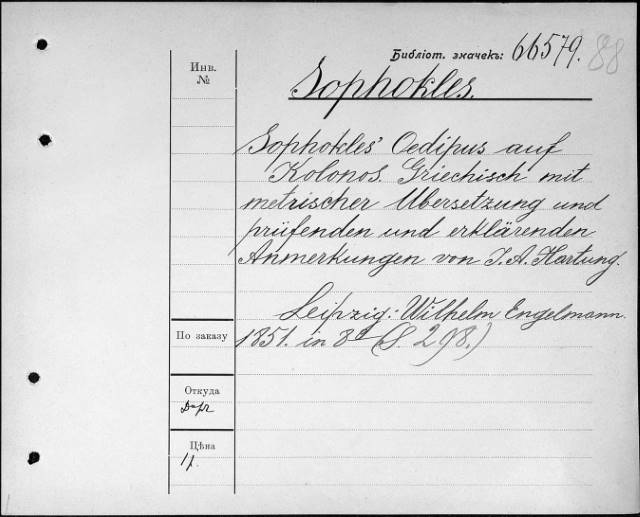 Библіот. значекъ: 66579. 88
Инв.
№
Sophokles.
Sophokles' Oedipus auf
Kolonos. Griechisch mit
metrischer Übersetzung und
prüfenden und erklärenden
Anmerkungen von J. A. Hartung.
Leipzig: Wilhelm Engelmann.
1851. in 8° (S. 298.)
По заказу
Откуда
Цѣна
1р.